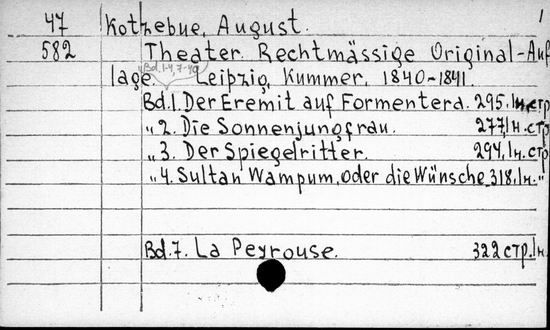 47 Kotzebue, August. 1
582 Theater. Rechtmässige Original-Auf
Bd. 1-4, 7-
lage. Leipzig, Kummer, 1840-1841.
Bd.1. Der Eremit auf Formentera. 295, стр
„ 2. Die Sonnenjungfrau. 277, 1н. стр
„ 3. Der Spiegelritter. 294, 1н. стр
„ 4. Sultan Wampum, oder die Wünsche 318, 1н. "
Bd. 7. La Peyrouse. 322 стр. 1н.